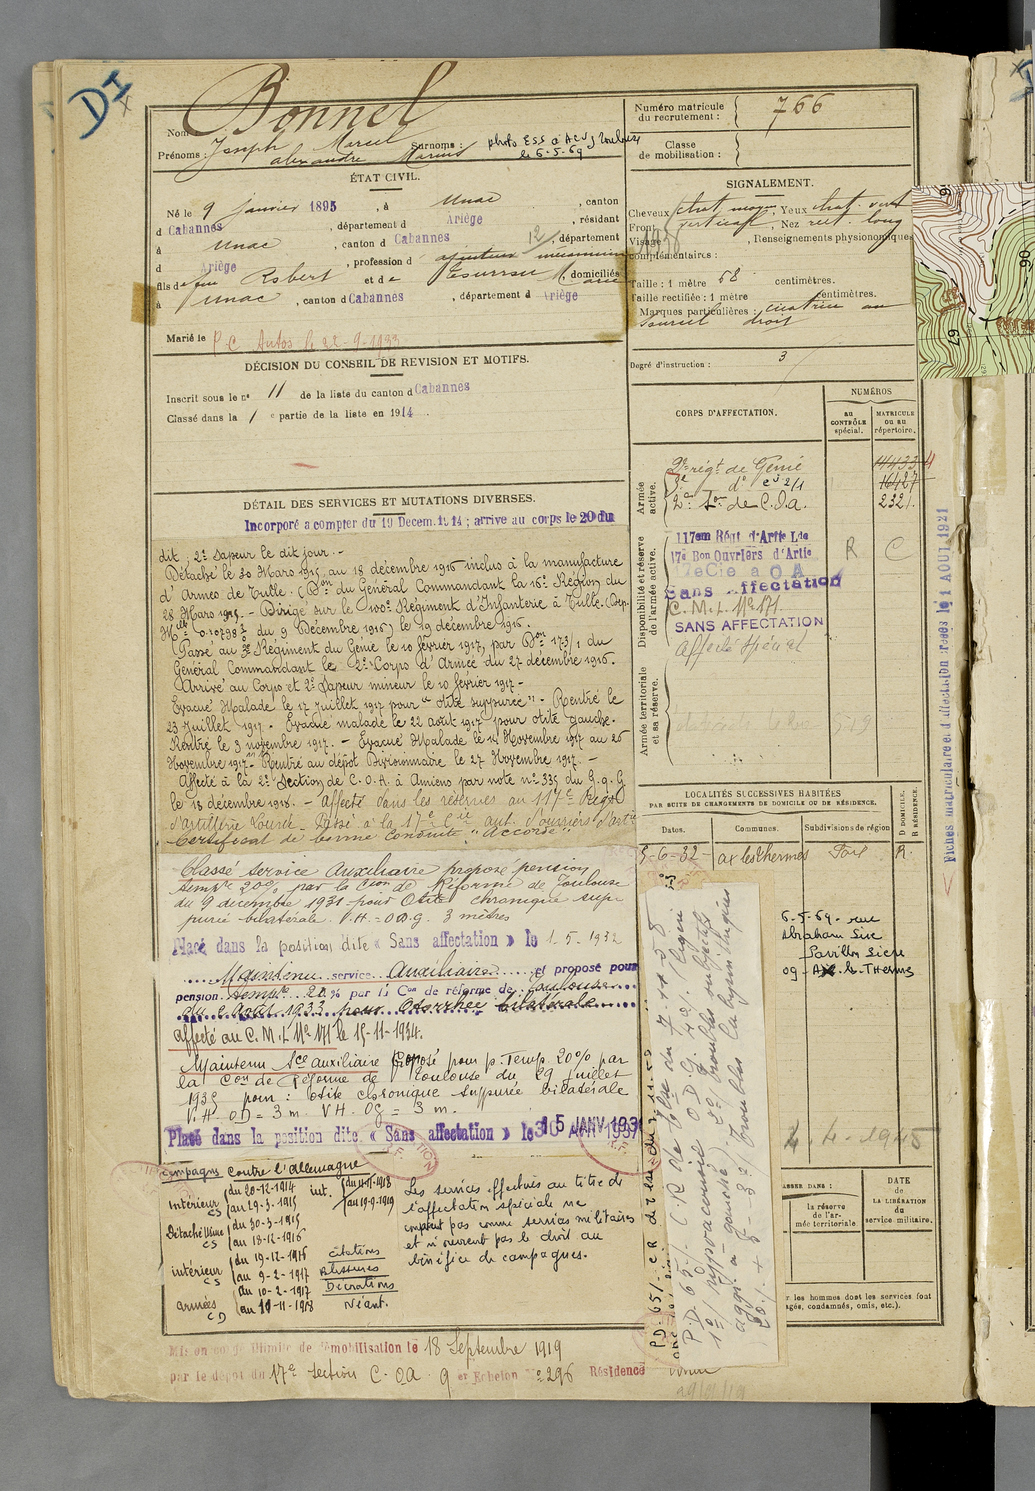 DI
Nom Bonnel
Prénoms : Joseph Marcel Surnoms : photo ESS à
alexandre Marius le 6-5-69
Numéro matricule du recrutement : 766
Classe de mobilisation :
ÉTAT CIVIL.
Né le 9 janvier 1895, à Unac, canton
d Cabannes, département d Ariège, résidant
à Unac, canton d Cabannes 12, département
d Ariège, profession d
fils de feu Robert et de domiciliés
à Unac, canton d Cabannes, département d Ariège
Marié le P.C. Autos le 22-9-1933
SIGNALEMENT.
Cheveux chat. moyen, Yeux chat. vert
Front vertical, Nez rect. long
Visage, Renseignements physionomiques
complémentaires :
Taille : 1 mètre 68 centimètres.
Taille rectifiée : 1 mètre centimètres.
Marques particulières : cicatrice au
sourcil droit
Degré d'instruction : 3
DÉCISION DU CONSEIL DE REVISION ET MOTIFS.
Inscrit sous le n° 11 de la liste du canton d Cabannes
Classé dans la 1 e partie de la liste en 1914.
CORPS D'AFFECTATION.
NUMÉROS
au CONTRÔLE spécial.
MATRICULE ou au répertoire.
Armée active.
2e régt de Génie
3e do
2e Son de C.O.A.
16427
2321
Disponibilité et réserve de l'armée active.
117em Régt d'Artie Lde
17e Bon Ouvriers d'Artie R C
17eCie à O A
Sans affectation
C.M.I. N° 171.
SANS AFFECTATION
Affecté spécial
Armée territoriale et sa réserve.
DÉTAIL DES SERVICES ET MUTATIONS DIVERSES.
Incorporé à compter du 19 Decem. 1914 ; arrivé au corps le 20 du
dit. 2e Sapeur le dit jour.-
Détaché le 30 Mars 1915, au 18 décembre 1916 inclus à la manufacture
d'Armes de Tulle. (Don du Général Commandant la 16e Région du
28 Mars 1915. - Dirigé sur le 100e Régiment d'Infanterie à Tulle. (Dep.
Mlle 0.10798 du 9 Décembre 1916) le 19 décembre 1916.
Passé au 3e Régiment du Génie le 10 février 1917, par Don 173/1 du
Général Commandant le 2e Corps d'Armée du 27 décembre 1916.
Arrivé au Corps et 2e Sapeur mineur le 10 février 1917-
Evacué Malade le 17 Juillet 1917 pour "otite suppurée". - Rentré le
23 Juillet 1917. - Evacué malade le 22 août 1917 pour otite gauche.
Rentré le 3 novembre 1917. - Evacué Malade le 14 Novembre 1917 au 26
Novembre 1917- Rentré au dépôt Divisionnaire le 27 Novembre 1917. -
Affecté à la 2e Section de C.O.A. à Amiens par note n° 335 du G.Q.G
le 18 décembre 1918. - Affecté dans les réserves au 117e Régt
d'artillerie Lourde - Passé à la 17e Cie aut. d'ouvriers d'artie
Certificat de bonne Conduite "Accordé"
Classé service Auxiliaire proposé pension
tempre 20% par la Cion de Réforme de Toulouse
du 9 décembre 1931 pour Otite chronique sup-
purée bilatérale. V.H. = O.D.g. 3 mètres
Placé dans la position dite « Sans affectation » le 1-5-1932
Maintenu service Auxiliaire et proposé pour
pension tempre 20% par la Con de réforme de Toulouse
du 2 Août 1933 pour Otorrhée bilatérale
Affecté au C.M.I N° 171 le 15-11-1934.
Maintenu Sce auxiliaire Proposé pour p. Temp 20% par
la Con de Réforme de Toulouse du 29 juillet
1935 pour : Otite chronique suppurée bilatérale
V.H. OD = 3 m. VH. Og = 3 m.
Placé dans la position dite « Sans affectation » le 15 JANV 193
LOCALITÉS SUCCESSIVES HABITÉES
PAR SUITE DE CHANGEMENTS DE DOMICILE OU DE RÉSIDENCE.
Dates. Communes. Subdivisions de région D DOMICILE. R RÉSIDENCE.
5-6-32 ax les thermes Foix R.
6-5-69 - rue
Abraham Sicre
Pavillon Sicre
09 - Ax. les Thermes
4-4-1945
la réserve de l'armée territoriale
DATE de LA LIBÉRATION du service militaire.
les hommes dont les services font
agés, condamnés, omis, etc.).
Campagne contre l'Allemagne
Intérieur CS du 20-12-1914 au 29-3-1915 int. du 11-11-1918 au 19-9-1919
Détaché Usine CS du 30-3-1915 au 18-12-1916
intérieur CS du 19-12-1916 au 9-2-1917
armées CD du 10-2-1917 au 10-11-1918
citations
Blessures
Décorations
Néant.
Les services effectués au titre de
l'affectation spéciale ne
comptent pas comme services militaires
et n'ouvrent pas le droit au
bénéfice de campagnes.
Mis en congé illimité de démobilisation le 18 Septembre 1919
par le dépôt du 17e section C.O.A. 9 er Echelon N° 296 Résidence
Fiches matriculaire et d'affectation créées le 1 AOUT 1921
P.D. 65%. C.R de Tlse du 7-11-58